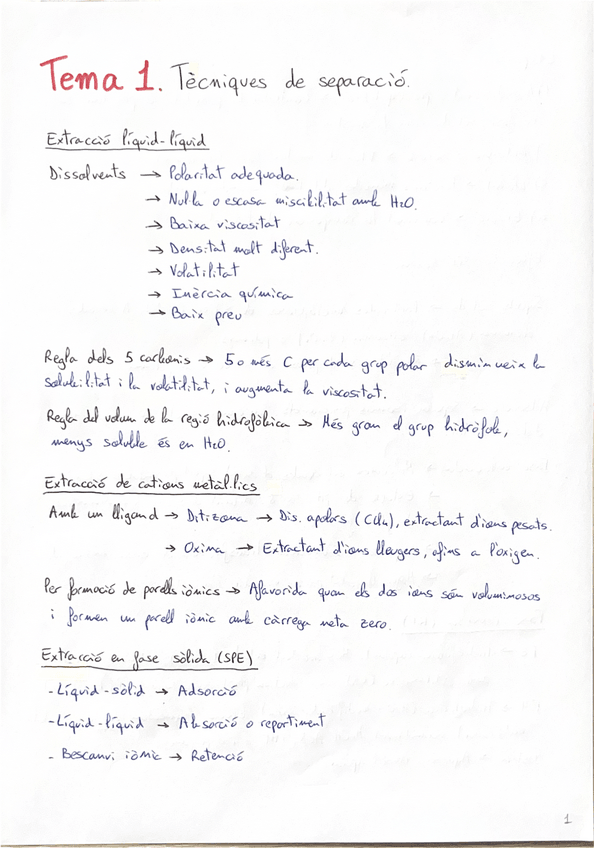 Tema 1. Tècniques de separació.
Extracció líquid-líquid
Dissolvents → Polaritat adequada.
→ Nul·la o escasa miscibilitat amb H2O.
→ Baixa viscositat
→ Densitat molt diferent.
→ Volatilitat
→ Inèrcia química
→ Baix preu
Regla dels 5 carbonis → 5 o més C per cada grup polar disminueix la
solubilitat i la volatilitat, i augmenta la viscositat.
Regla del volum de la regió hidrofòbica → Més gran el grup hidròfob,
menys soluble és en H2O.
Extracció de cations metàl·lics
Amb un lligand → Ditizona → Dis. apolars (CCl4), extractant d'ions pesats.
→ Oxima → Extractant d'ions lleugers, afins a l'oxigen.
Per formació de parells iònics → Afavorida quan els dos ions són voluminosos
i formen un parell iònic amb càrrega neta zero.
Extracció en fase sòlida (SPE)
- Líquid-sòlid → Adsorció
- Líquid-líquid → Absorció o repartiment
- Bescanvi iònic → Retenció
1